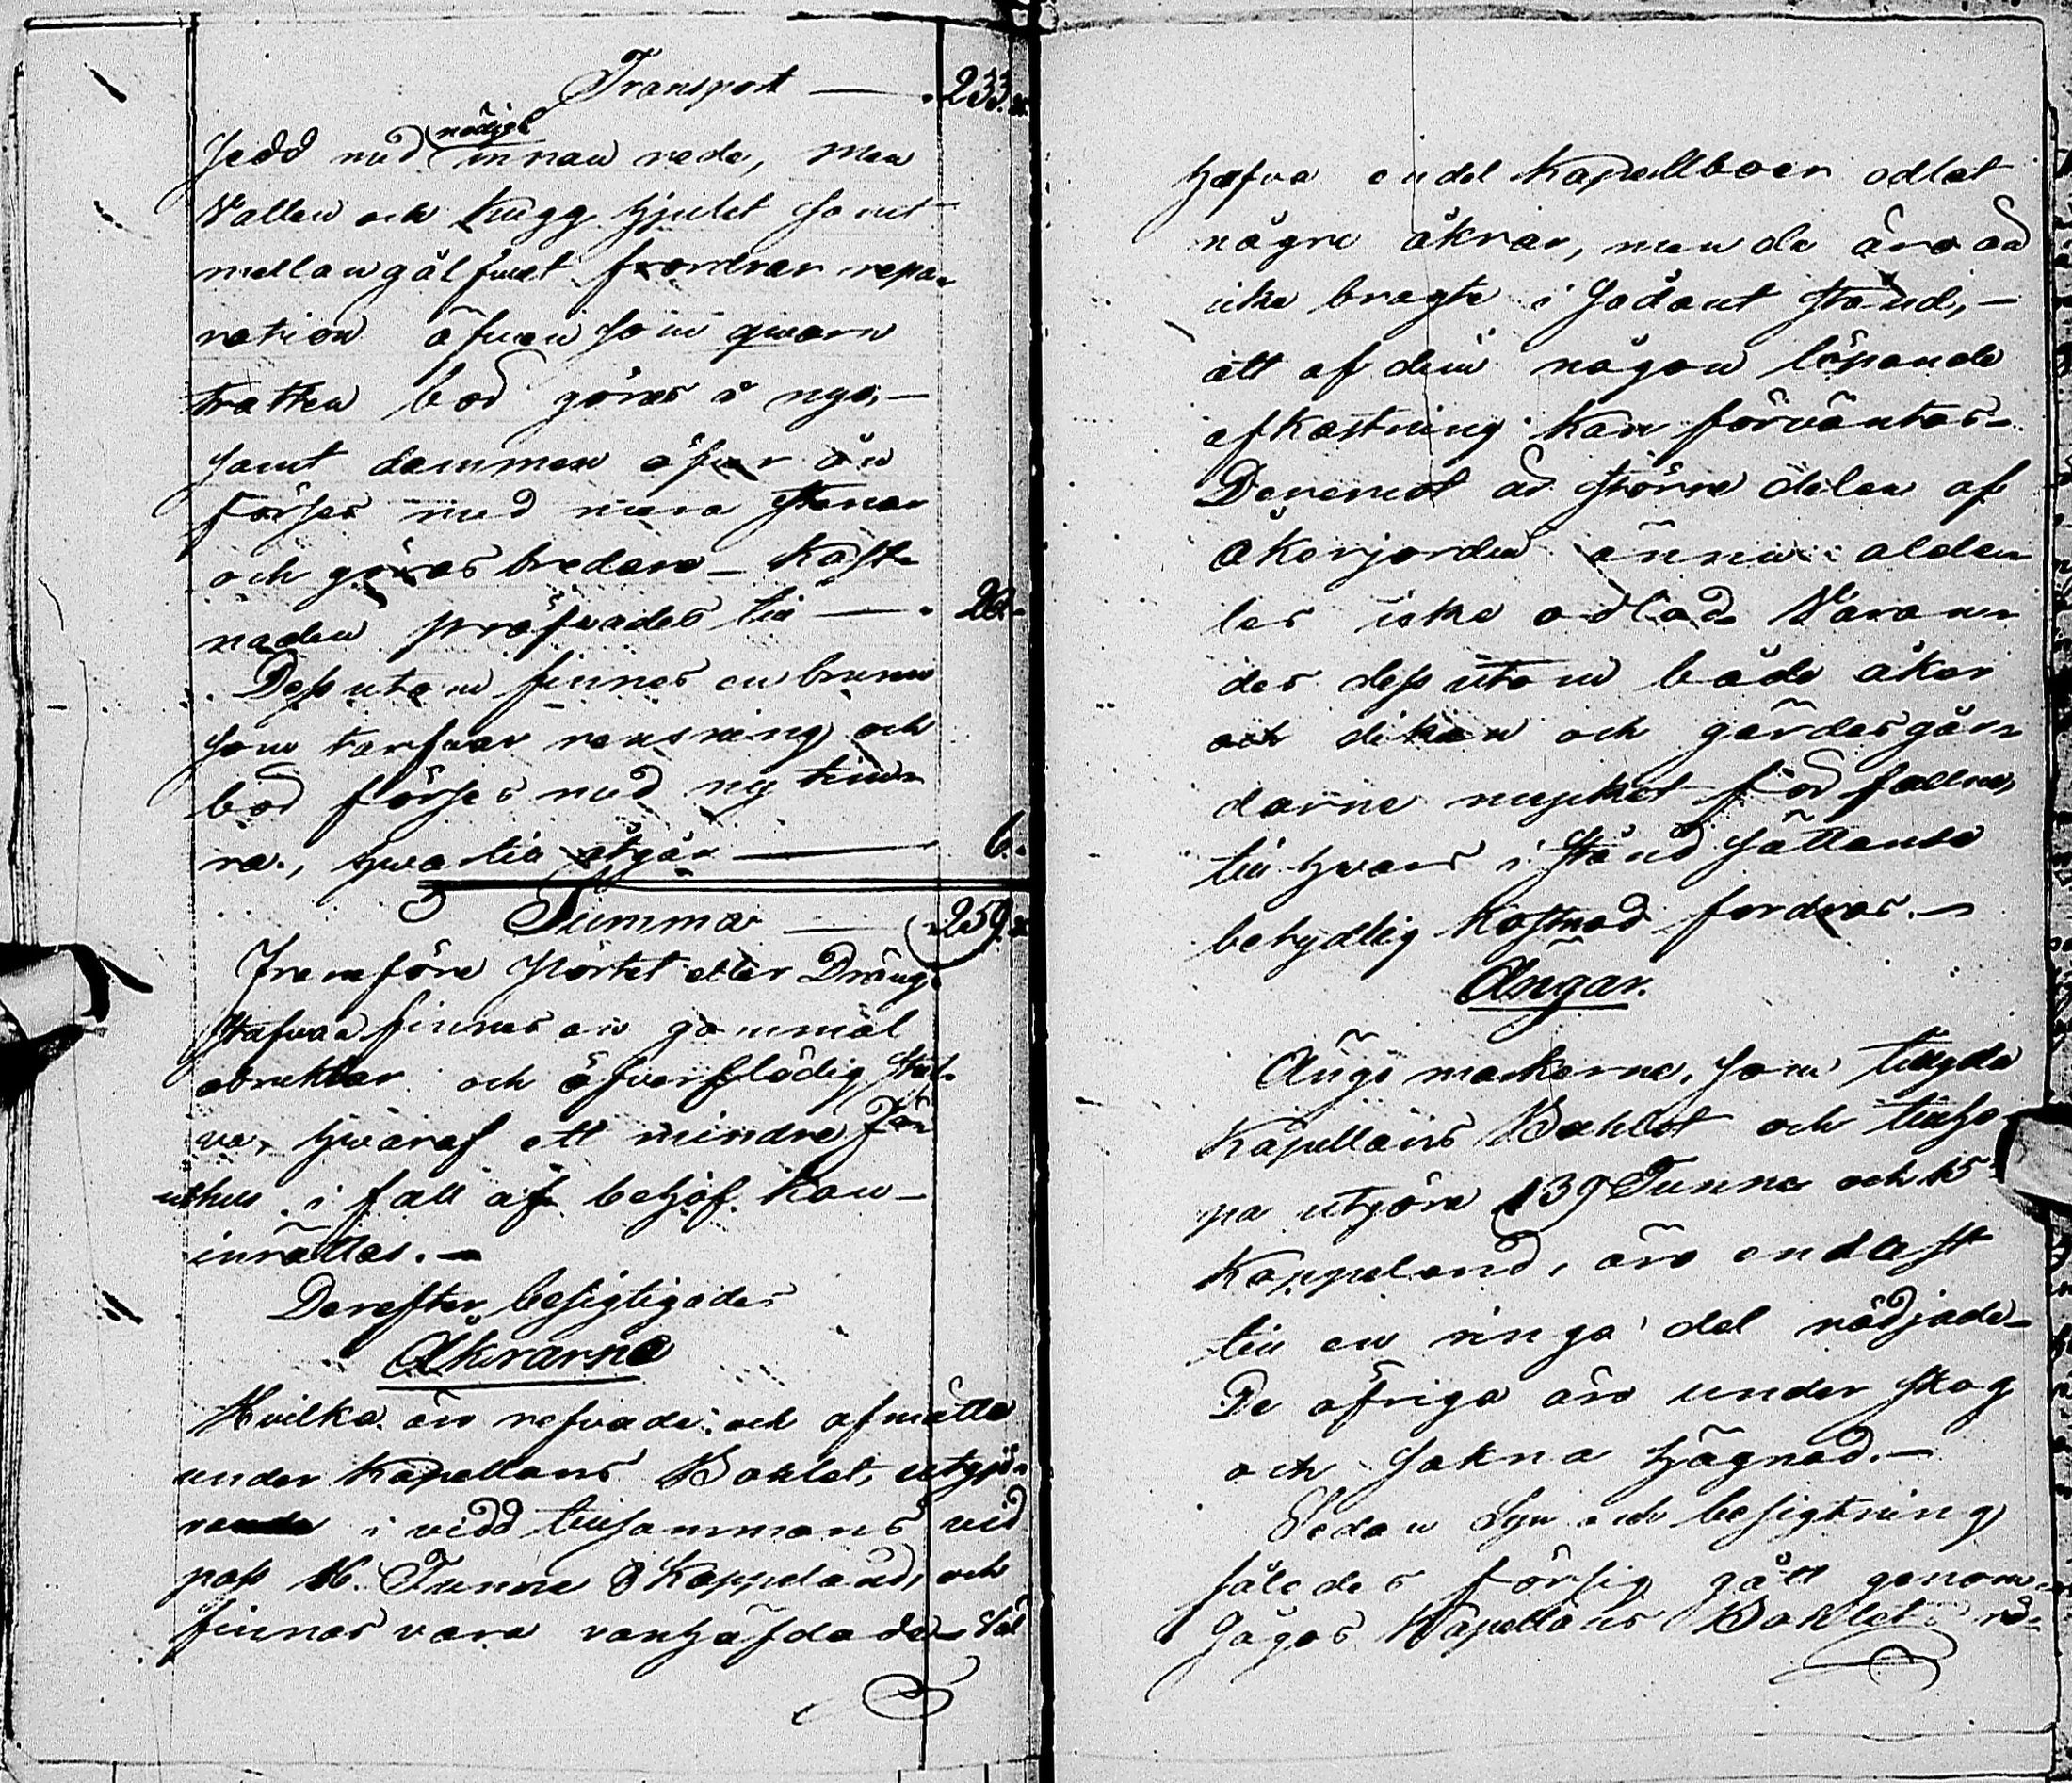 Transport — 233.
sedd med nödigt innan rede, men
Vallen och Kugg hjulet samt
mellangålfvet fordrar repa-
ration äfven som qvarn
tratten bör göras å nyo,—
samt dammen öfver ån
förses med mera stenar
och göras bredare – Kost-
naden pröfvades till — 20.
Dessutom finnes en brunn
som tarfvar rensning och
bör förses med ny tim-
ra, hvartill åtgår — 6.
Summa — 259.
Framföre Pörtet eller Dräng-
stufvan finnes en gammal
obrukbar och öfverflödig stu-
va, hvaraf ett mindre Får
uthus i fall af behof kan
inrättas.—
Derefter besigtigades
Åkrarne
Hvilka äro refvade och afmätte
under Kapellans Bohlet, utgjö-
rande i vidd tillsammans vid
pass 16. Tunne 8 Kappeland, och
finnas vara vanhäfdade. Väl
hafva endel Kapellboer odlat
några åkrar, men de äro än
icke bragte i sådant stånd,—
att af dem någon lönande
afkastning kan förväntas.
Deremot är större delen af
åkerjorden ännu aldeu-
les icke odlad. Varan-
des dessutom både åker
och diken och gärdesgår-
darne mycket förfallne,
till hvars i stånd sättande
betydlig kostnad fordras.—
Ängar.
Ängs markerne, som tillyda
Kapellans Bohlet och tillho-
pa utgöra 139 Tunne och 15
Kappeland, äro endast
till en ringa del rödjade.
De öfriga äro under skog
och sakna hägnad.—
Sedan Syn och besigtning
således försig gått genom-
sågos Kapellans Bohlets rå-